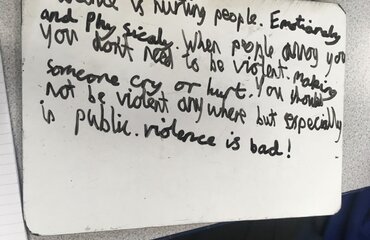 is hurting people. Emotionaly
and phy sicaly. When people annoy you
you dont need to be violent. Making
someone cry or hurt. You should
not be violent anywhere but especially
in public. violence is bad!